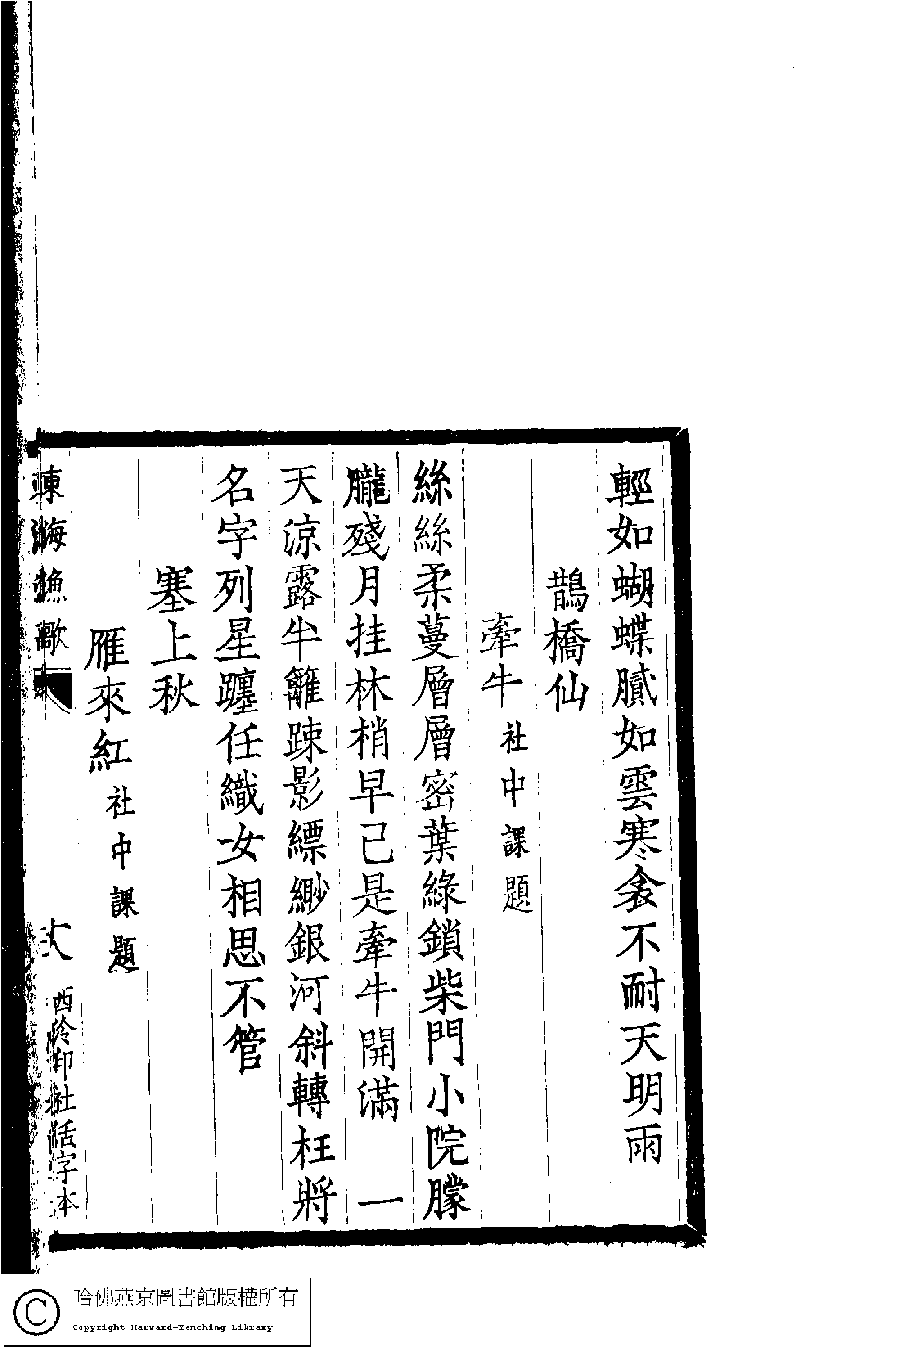 輕如蝴蝶膩如雲寒衾不耐天明雨
鵲橋仙
牽牛社中課題
絲絲柔蔓層層密葉綠鎖柴門小院朦
朧殘月挂林梢早已是牽牛開滿　一
天涼露半籬踈影縹緲銀河斜轉枉將
名字列星躔任織女相思不管
塞上秋
雁來紅社中課題
東海漁歌
西泠印社活字本
哈佛燕京圖書館版權所有
Copyright Harvard-Yenching Library